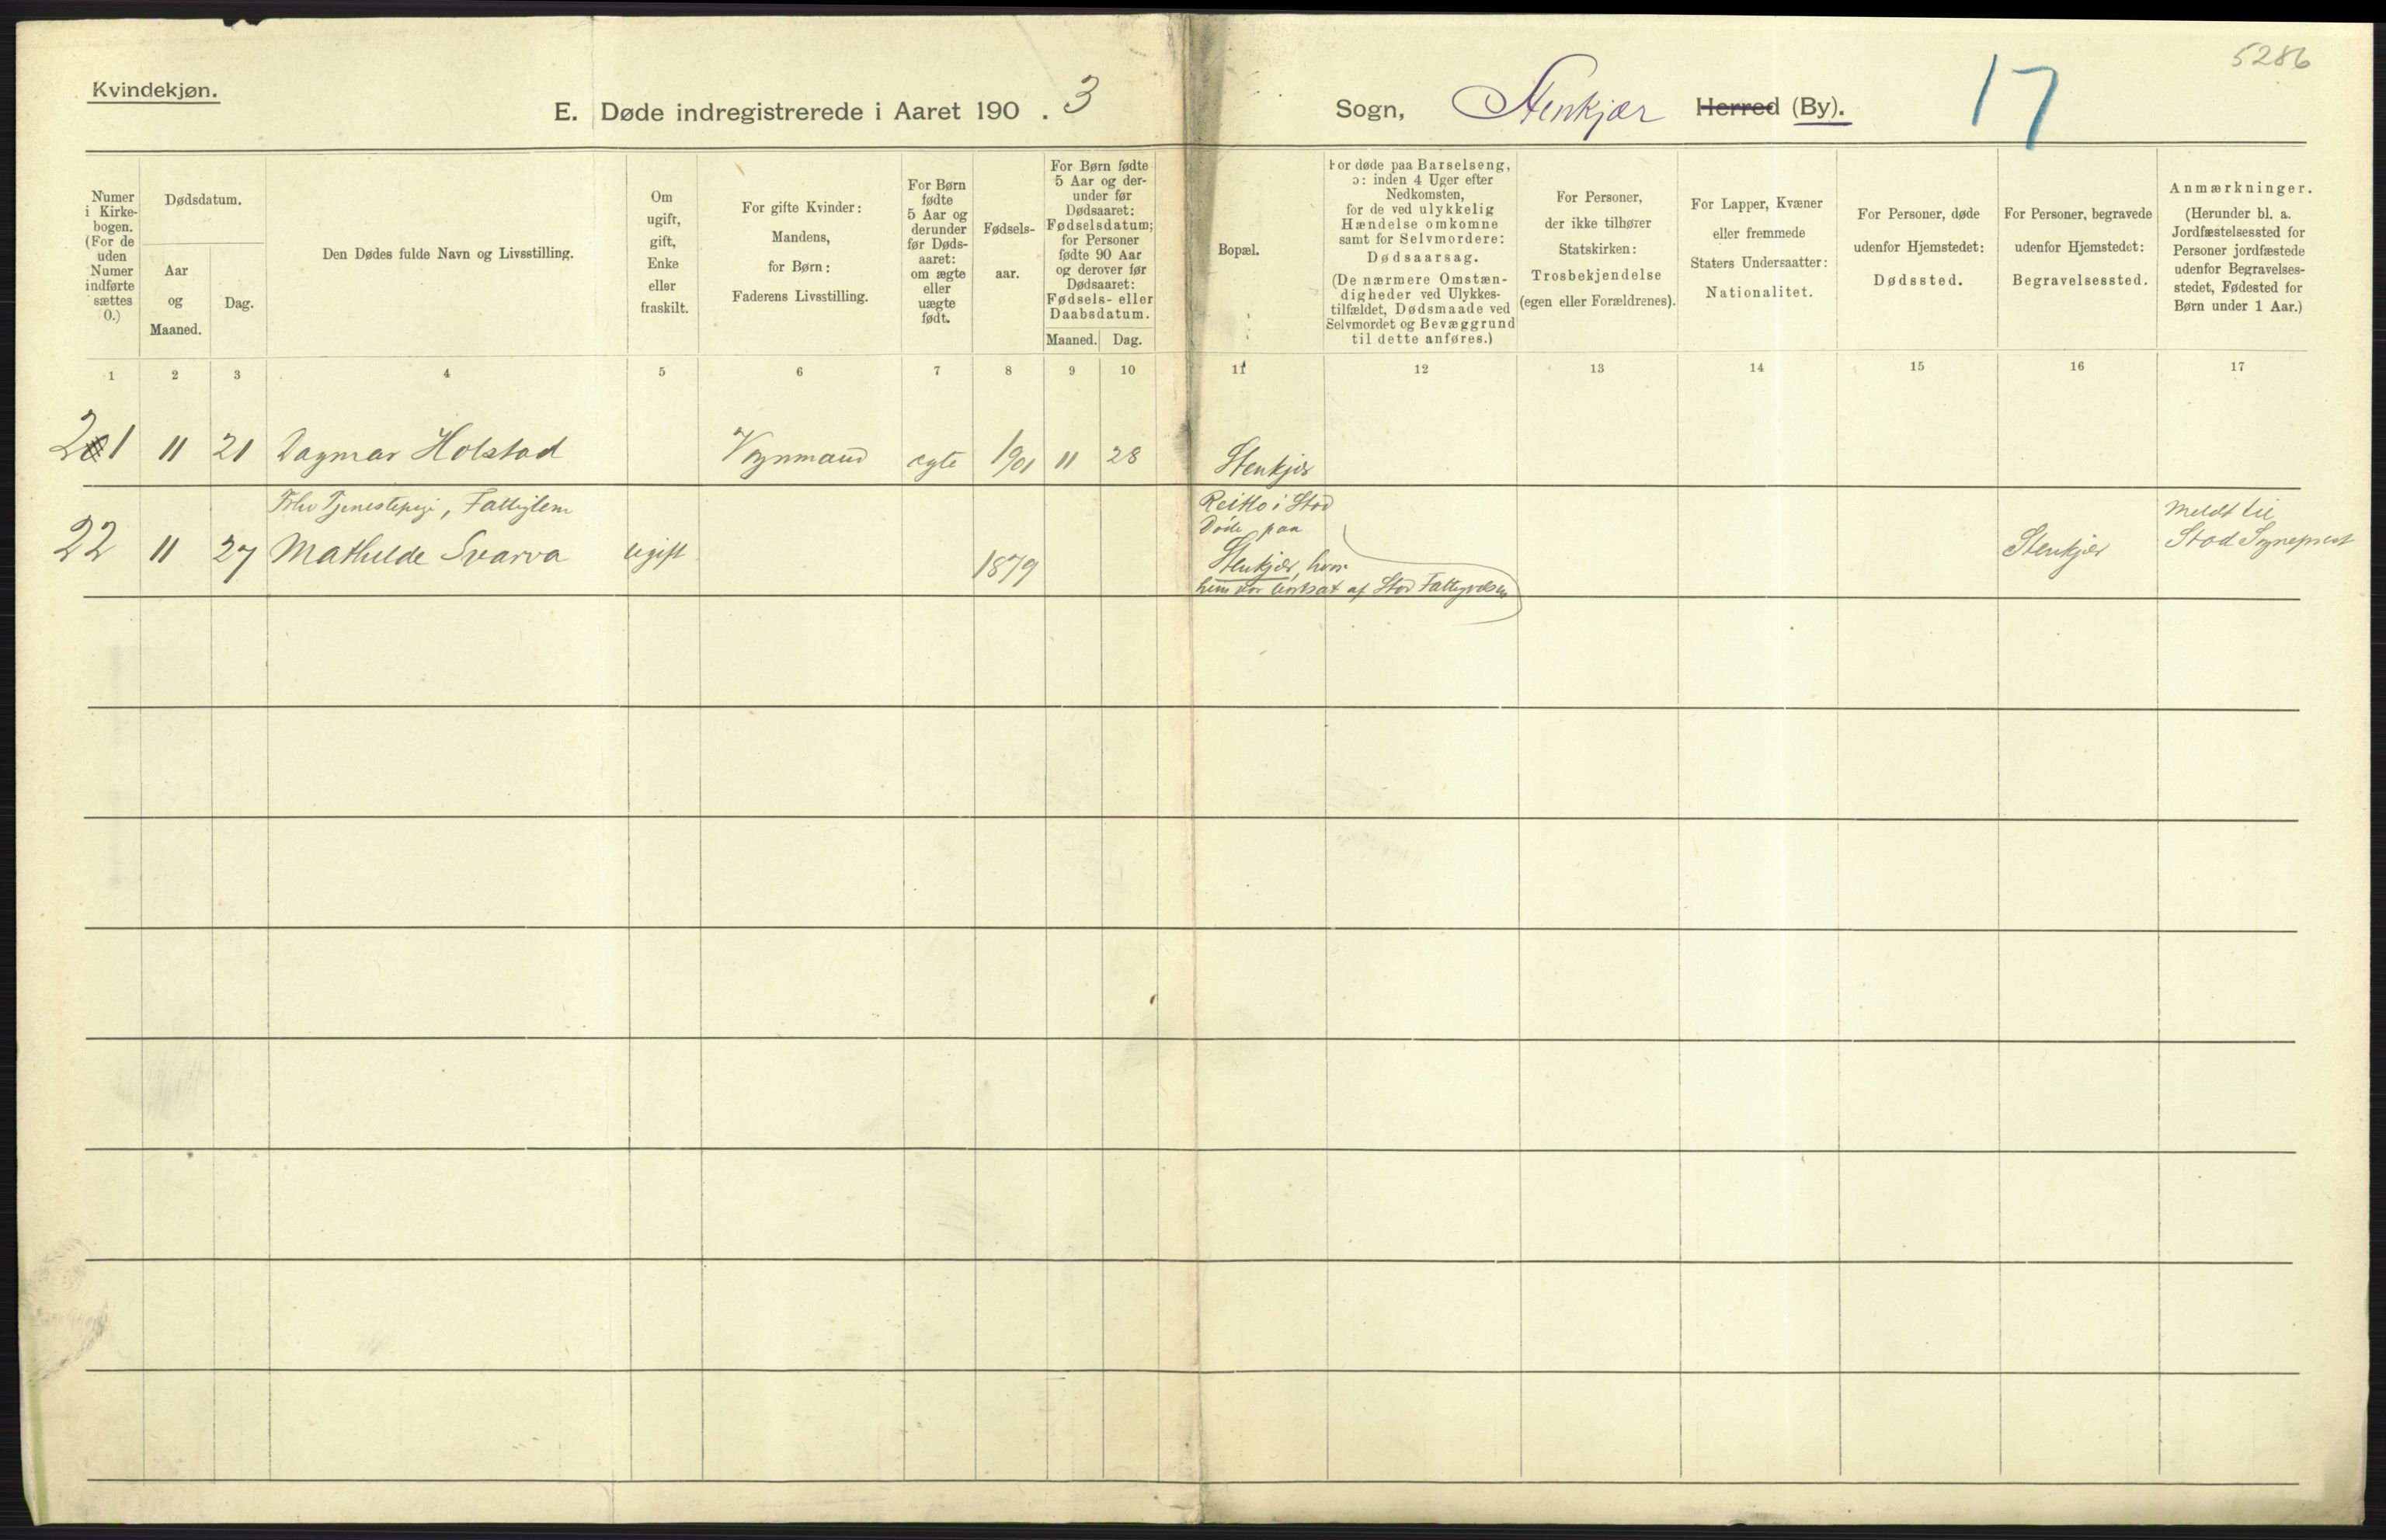 5286
17
Kvindekjøn.
E. Døde indregistrerede i Aaret 190 . 3 Sogn, Stenkjær Herred (By).
Numer i Kirke- bogen. (For de uden Numer indførte sættes 0.)
Dødsdatum.
Aar og Maaned.
Dag.
Den Dødes fulde Navn og Livsstilling.
Om ugift, gift, Enke eller fraskilt.
For gifte Kvinder: Mandens, for Børn: Faderens Livsstilling.
For Børn fødte 5 Aar og derunder før Døds- aaret: om ægte eller uægte født.
Fødsels- aar.
For Børn fødte 5 Aar og der- under før Dødsaaret: Fødselsdatum; for Personer fødte 90 Aar og derover før Dødsaaret: Fødsels- eller Daabsdatum.
Maaned. Dag.
Bopæl.
For døde paa Barselseng, ɔ: inden 4 Uger efter Nedkomsten, for de ved ulykkelig Hændelse omkomne samt for Selvmordere: Dødsaarsag. (De nærmere Omstæn- digheder ved Ulykkes- tilfældet, Dødsmaade ved Selvmordet og Bevæggrund til dette anføres.)
For Personer, der ikke tilhører Statskirken: Trosbekjendelse (egen eller Forældrenes).
For Lapper, Kvæner eller fremmede Staters Undersaatter: Nationalitet.
For Personer, døde udenfor Hjemstedet: Dødssted.
For Personer, begravede udenfor Hjemstedet: Begravelsessted.
Anmærkninger. (Herunder bl. a. Jordfæstelsessted for Personer jordfæstede udenfor Begravelses- stedet, Fødested for Børn under 1 Aar.)
1 2 3 4 5 6 7 8 9 10 11 12 13 14 15 16 17
21 11 21 Dagmar Holstad Vognmand egte 1901 11 28 Stenkjær
Tjenestepige, Fattiglem Stod Meldt til
Døde paa
22 11 27 Mathilde Svarva ugift 1879 Stenkjær, hvor Stenkjær Stod Sogneprest
hun var bortsat af Stod Fattigvæsen